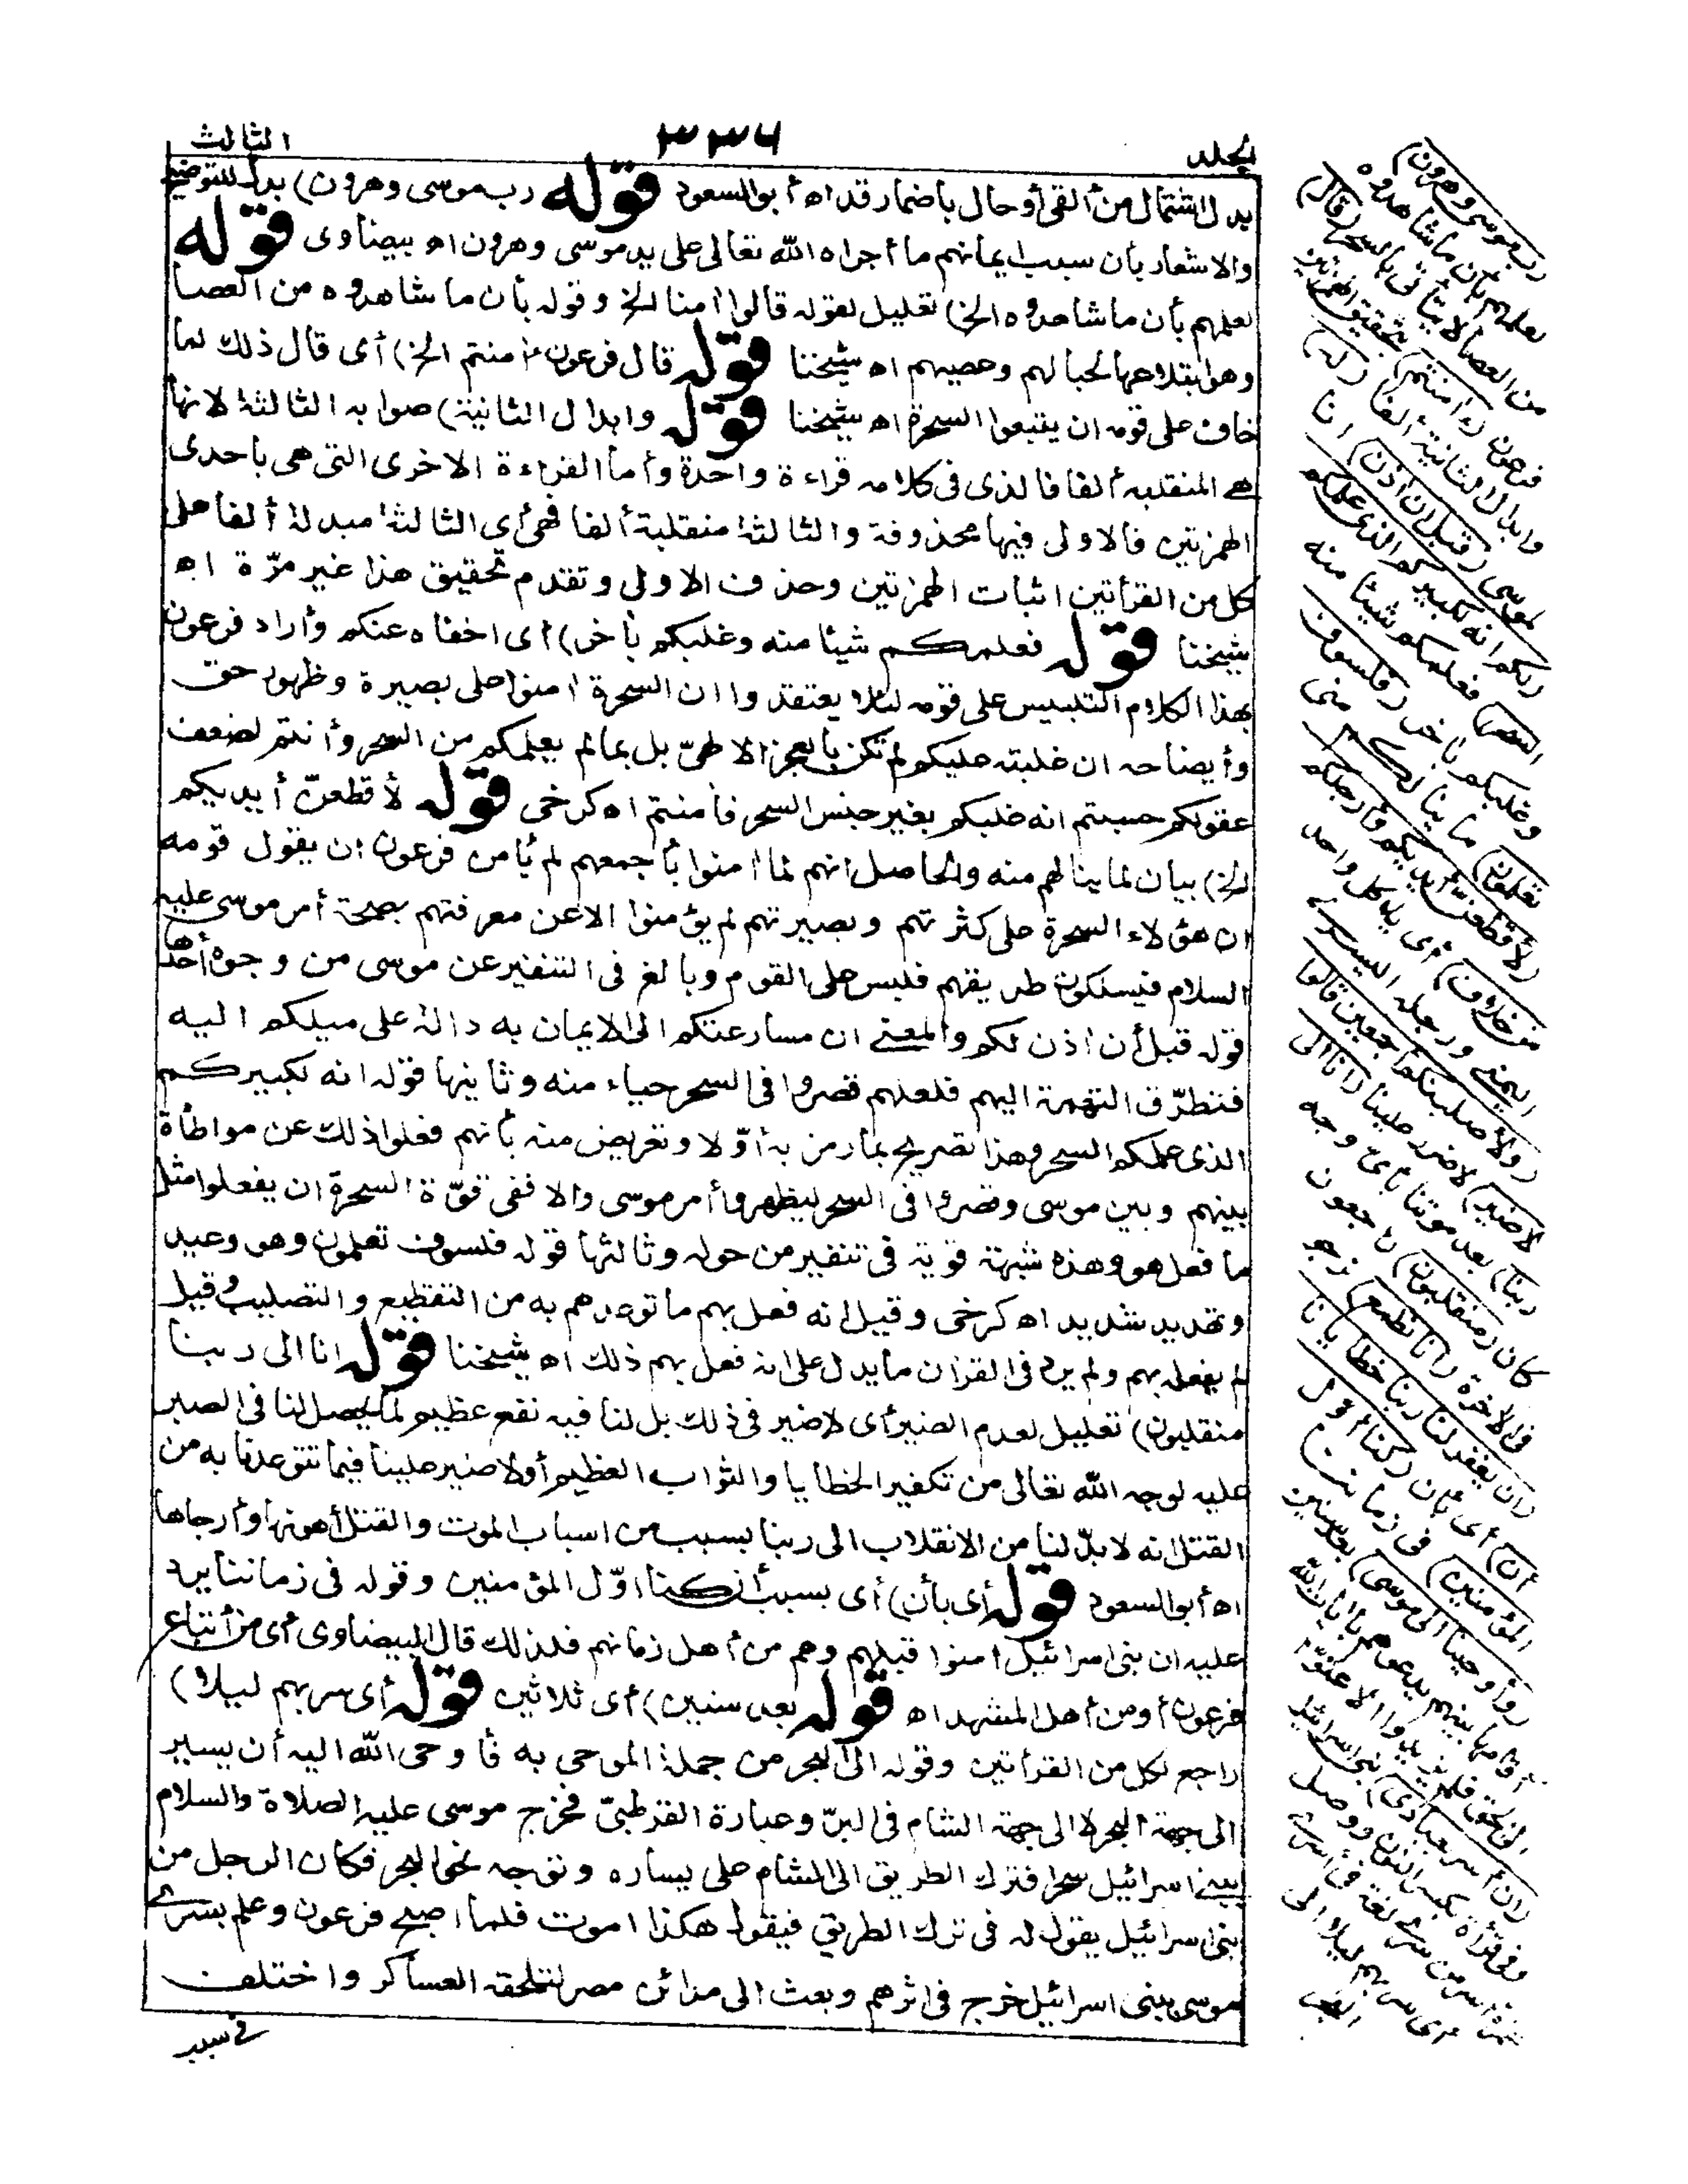 المجلد
٣٣٦
الثالث
بدل اشتمال من ألقى أو حال بأضمار قد اه أبو السعود قوله رب موسى وهرون) بدل للتوضيح
والاشعار بأن سبب ايمانهم ما أجراه الله تعالى على يد موسى وهرون اه بيضاوى قوله
لعلمهم بأن ما شاهدوه الخ) تعليل لقوله قالوا امنا الخ وقوله بأن ما شاهدوه من العصا
وهو ابتلاعها لحبالهم وعصيهم اه شيخنا قوله قال فرعون ءامنتم الخ) أى قال ذلك لما
خاف على قومه ان يتبعوا السحرة اه شيخنا قوله وابدال الثانية) صوابه الثالثة لانها
هے المنقلبه ألفا فالذى فى كلامه قراءة واحدة وأما القراءة الاخرى التى هى باحدى
الهمزتين فالاولى فيها محذوفة والثالثة منقلبة ألفا فهى أى الثالثة مبدلة ألفا على
كل من القرأتين اثبات الهمزتين وحذف الاولى وتقدم تحقيق هذا غير مرّة اه
شيخنا قوله فعلمكم شيئا منه وغلبكم بأخر) أى اخفاه عنكم وأراد فرعون
بهذا الكلام التلبيس على قومه لئلا يعتقدوا ان السحرة امنوا على بصيرة وظهور حق
وأيضاحه ان غلبته عليكم لم تكن بالعجز الالهىّ بل بمالم يعلمكم من السحر وأنتم لضعف
عقولكم حسبتم انه غلبكم بغير جنس السحر فأمنتم اه كرخى قوله لأقطعنّ أيديكم
الخ) بيان لما ينالهم منه والحاصل انهم لما امنوا بأجمعهم لم يأمن فرعون ان يقول قومه
ان هؤلاء السحرة على كثرتهم وبصيرتهم لم يؤمنوا الا عن معرفتهم بصحة أمر موسى عليه
السلام فيسلكون طريقهم فلبس على القوم وبالغ فى التنفير عن موسى من وجوه أحدها
قوله قبل أن اذن لكم والمعنے ان مسارعتكم الى الايمان به دالة على ميلكم اليه
فتطرّق التهمة اليهم فلعلهم قصروا فى السحر حياء منه وثانيها قوله انه لكبيركم
الذى علمكم السحر وهذا تصريح بما رمز به أوّلا وتعريض منه بأنهم فعلوا ذلك عن مواطأة
بينهم وبين موسى وقصروا فى السحر ليظهروا أمر موسى والا ففى قوّة السحرة ان يفعلوا مثل
ما فعل هو وهذه شبهة قوية فى تنفير من حوله وثالثها قوله فلسوف تعلمون وهو وعيد
وتهديد شديد اه كرخى وقيل انه فعل بهم ما توعدهم به من التقطيع والتصليب وقيل
لم يفعله بهم ولم يرد فى القران ما يدل على انه فعل بهم ذلك اه شيخنا قوله انا الى ربنا
منقلبون) تعليل لعدم الضير أى لا ضير فى ذلك بل لنا فيه نفع عظيم لما يحصل لنا فى الصبر
عليه لوجه الله تعالى من تكفير الخطايا والثواب العظيم أو لا ضير علينا فيما تتوعدنا به من
القتل انه لا بدّ لنا من الانقلاب الى ربنا بسبب من اسباب الموت والقتل أهونها وأرجاها
اه أبو السعود قوله أى بأن) أى بسبب أن كنا اوّل المؤمنين وقوله فى زماننا يرد
عليه ان بنى اسرائيل امنوا قبلهم وهم من أهل زمانهم فلذلك قال البيضاوى أى من أتباع
فرعون أو من أهل المشهد اه قوله بعد سنين) أى ثلاثين قوله أى سر بهم ليلا)
راجع لكل من القرأتين وقوله الى البحر من جملة الموحى به فأوحى الله اليه أن يسير
الى جهة البحر لا الى جهة الشام فى البرّ وعبارة القرطبىّ فخرج موسى عليه الصلاة والسلام
ببنے اسرائيل سحرا فترك الطريق الى الشام على يساره وتوجه نحو البحر فكان الرجل من
بنى اسرائيل يقول له فى ترك الطريق فيقول هكذا امرت فلما اصبح فرعون وعلم بسرے
موسى ببنى اسرائيل خرج فى اثرهم وبعث الى مدائن مصر لتلحقه العساكر واختلف
رب موسى وهرون)
لعلمهم بأن ما شاهدوه
من العصا لا يتأتى بالسحر (قال)
فرعون (ءامنتم) بتحقيق الهمزتين
وابدال الثانية ألفا (له)
لموسى (قبل ان اذن) انا
لكم انه لكبيركم الذى علمكم
السحر) فعلمكم شيئا منه
وغلبكم باخر (فلسوف
تعلمون) ما ينالكم منى
لأقطعنّ أيديكم وأرجلكم
من خلاف) أى يد كل واحد
اليمنے ورجله اليسرے
(ولأصلبنكم أجمعين قالوا
لا ضير) لا ضرر علينا (انا الى
ربنا) بعد موتنا بأىّ وجه
كان (منقلبون) راجعون
فى الاخرة (انا نطمع) نرجو
(ان يغفر لنا ربنا خطايانا
أن) أى بأن (كنا أول
المؤمنين) فى زماننا
(وأوحينا الى موسى) بعد سنين
أقامها بينهم يدعوهم بأيات الله
الى الحق فلم يزيدوا الا عتوّا
(أن أسر بعبادى) بنى اسرائيل
وفى قرأة بكسر النون ووصل
همزة اسر من سرى لغة فى أسرے
أى سر بهم ليلا الى
البحر